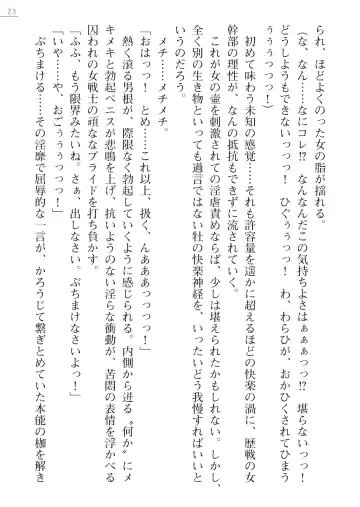 23
られ、ほどよくのった女の脂が揺れる。
（な、なん……なにコレ⁉　なんなんだこの気持ちよさはぁぁぁっっ⁉　堪らないっっ！
どうしようもできないっっっ！　ひぐぅぅっっ！　わ、わらひが、おかひくされてひまう
ぅぅっっっ！）
初めて味わう未知の感覚……それも許容量を遥かに超えるほどの快楽の渦に、歴戦の女
幹部の理性が、なんの抵抗もできずに流されていく。
これが女の壺を刺激されての淫虐責めならば、少しは堪えられたかもしれない。しかし、
全く別の生き物といっても過言ではない牡の快楽神経を、いったいどう我慢すればいいと
いうのだろう。
メチ……メチメチ。
「おはっっ！　とめ……これ以上、扱く、んあああっっっっ！」
熱く滾る男根が、際限なく勃起していくように感じられる。内側から迸る〝何か〟にメ
キメキと勃起ペニスが悲鳴を上げ、抗いようのない淫らな衝動が、苦悶の表情を浮かべる
囚われの女戦士の頑ななプライドを打ち負かす。
「ふふ、もう限界みたいね。さぁ、出しなさい。ぶちまけなさいよっ！」
「いや……や、おごぅぅぅっっっっ！」
ぶちまける……その淫靡で屈辱的な一言が、かろうじて繋ぎとめていた本能の枷を解き